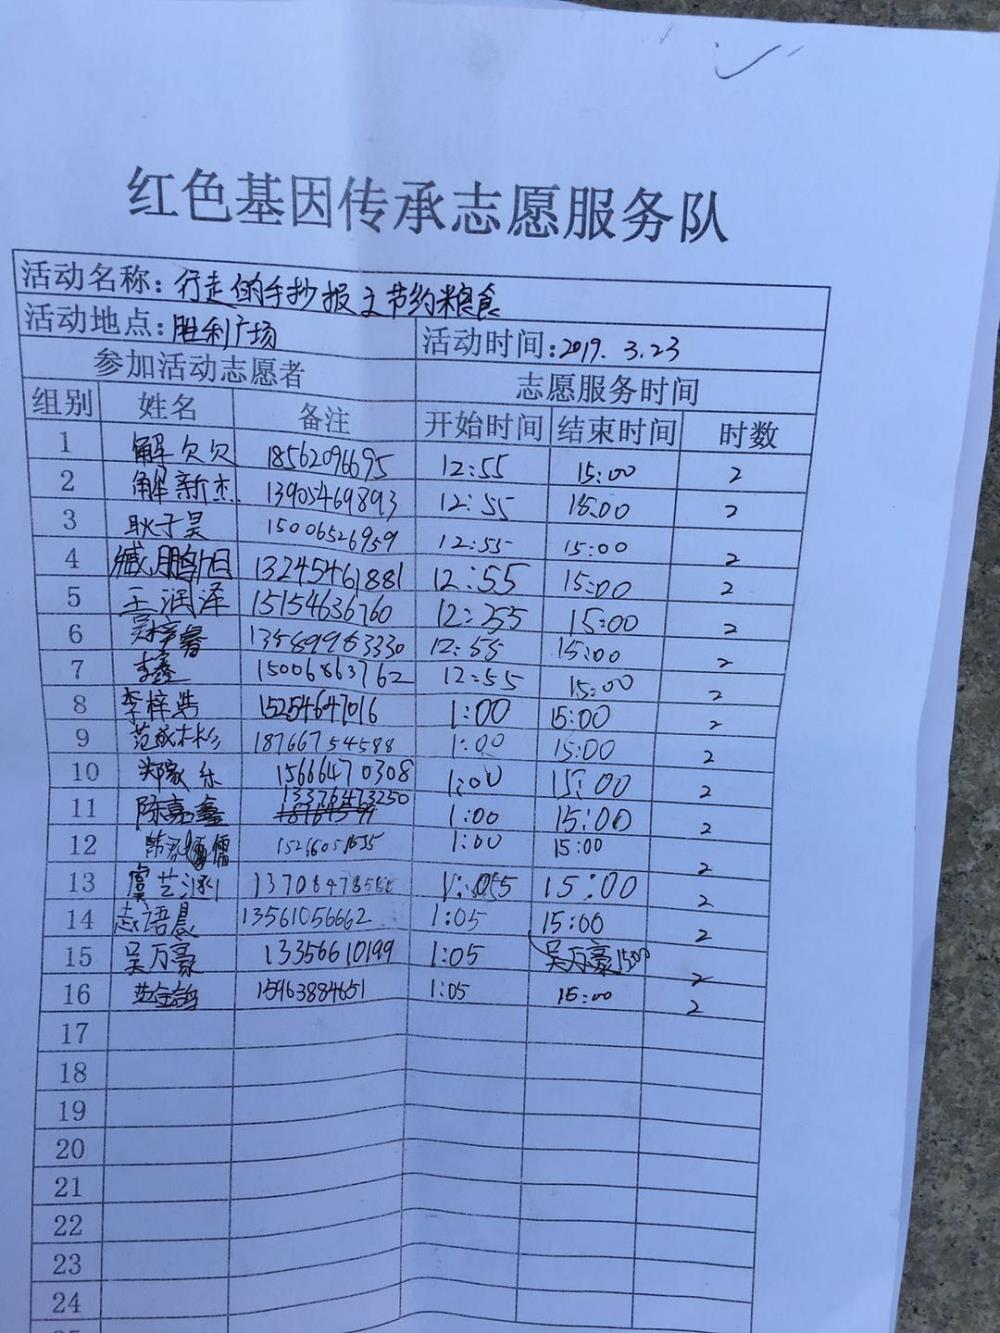 红色基因传承志愿服务队
活动名称：行走的手抄报之节约粮食
活动地点：胜利广场 活动时间：2019.3.23
参加活动志愿者 志愿服务时间
组别 姓名 备注 开始时间 结束时间 时数
1 解欠欠 18562096695 12:55 15:00 2
2 解新杰 13905469893 12:55 18:00 2
3 耿子昊 15006526959 12:55 15:00 2
4 臧鹏旭 13245461881 12:55 15:00 2
5 王润泽 15154636760 12:55 15:00 2
6 13589983330 12:55 15:00 2
7 李鑫 15006863762 12:55 15:00 2
8 李梓浩 15254647016 1:00 15:00 2
9 范成木杉 18766754588 1:00 15:00 2
10 郑家乐 15666470308 1:00 15:00 2
11 陈嘉鑫 13376473250 1:00 15:00 2
12 1:00 15:00 2
13 虞艺 1:05 15:00 2
14 志语晨 13561056662 1:05 15:00 2
15 吴万豪 13356610199 1:05 吴万豪 15:00 2
16 15963884651 1:05 15:00 2
17
18
19
20
21
22
23
24